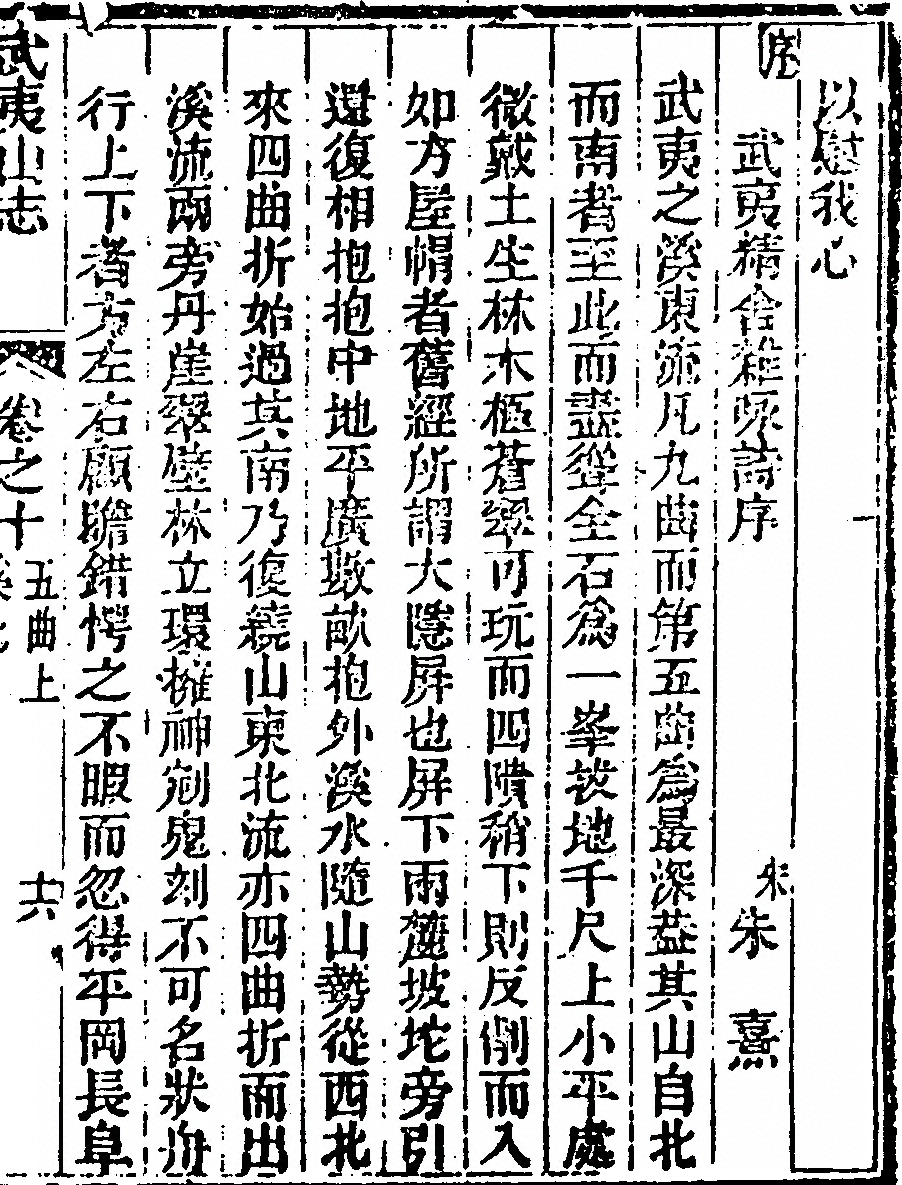 以慰我心
序
武夷精舍雜咏詩序 宋 朱熹
武夷之溪東流凡九曲而第五曲爲最深葢其山自北
而南者至此而盡聳全石爲一峯拔地千尺上小平處
微戴土生林木極蒼翠可玩而四隤稍下則反削而入
如方屋帽者舊經所謂大隱屏也屏下兩麓坡坨旁引
還復相抱抱中地平廣數畝抱外溪水隨山勢從西北
來四曲折始過其南乃復繞山東北流亦四曲折而出
溪流兩旁丹崖翠壁林立環擁神剜鬼刻不可名狀舟
行上下者方左右顧瞻錯愕之不暇而忽得平岡長阜
武夷山志 卷之十 五曲上 十六